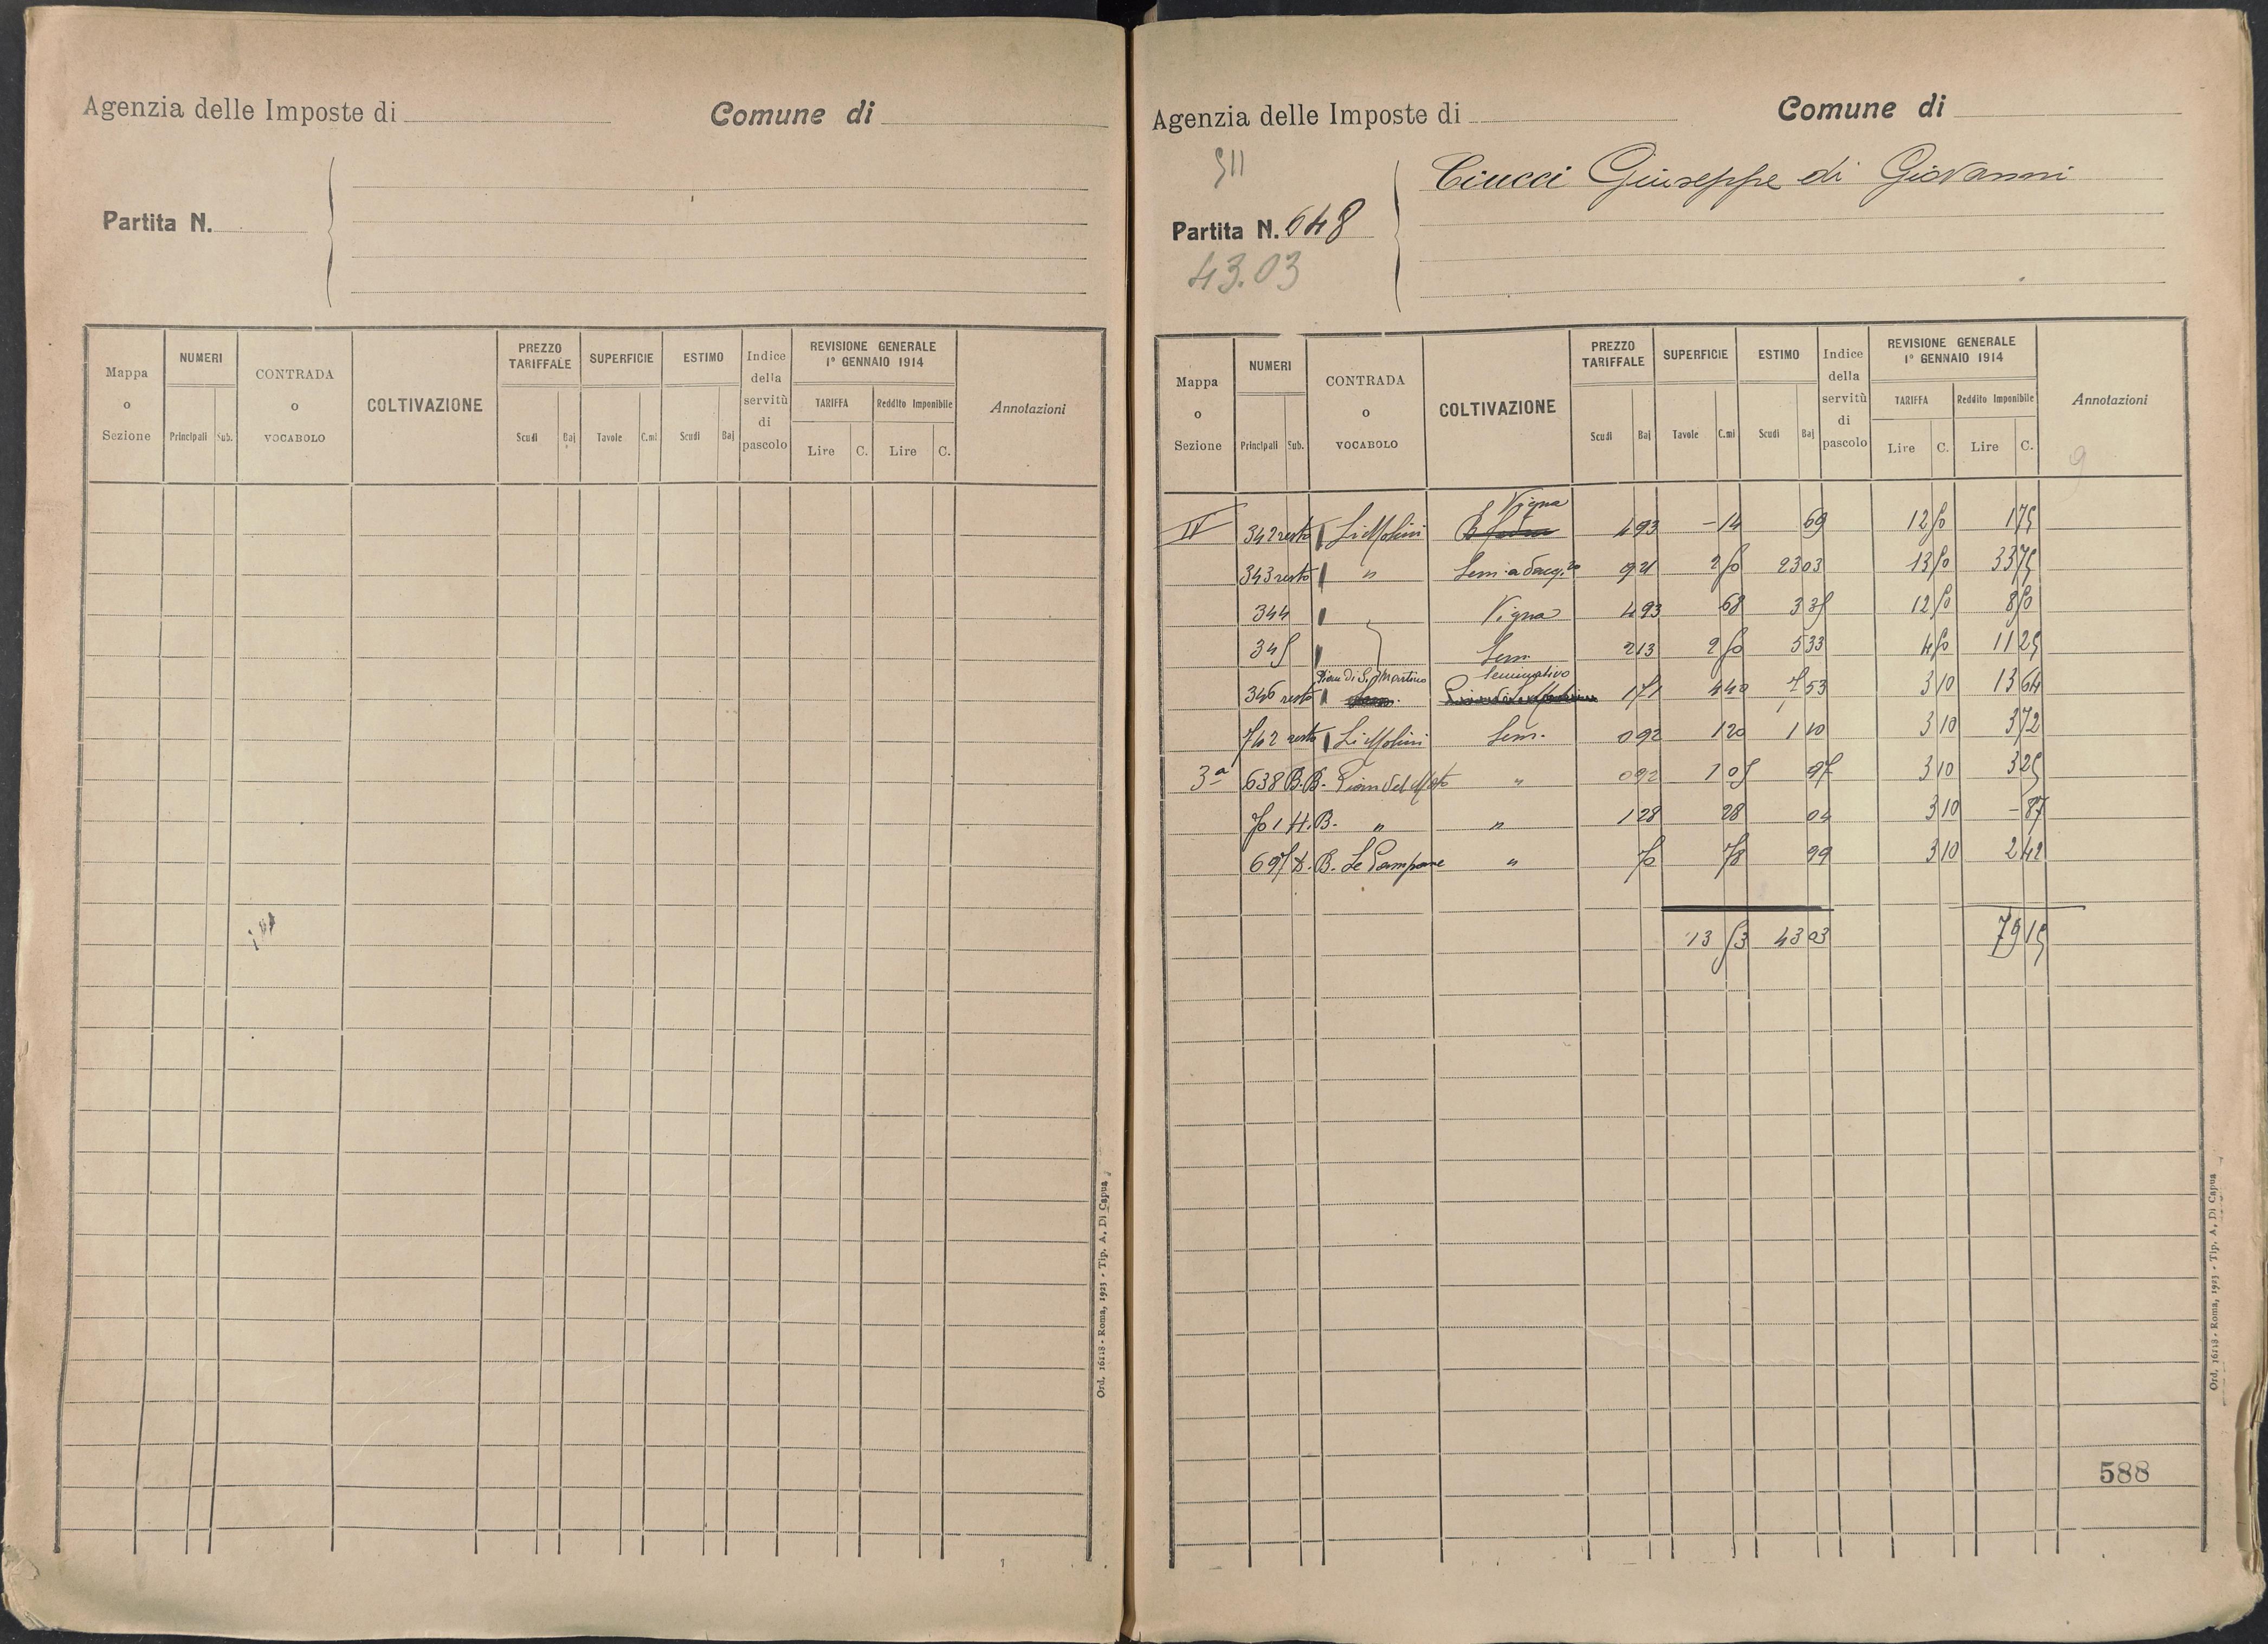 Agenzia delle Imposte di Comune di
Partita N.
Mappa o Sezione NUMERI Principali Sub. CONTRADA o VOCABOLO COLTIVAZIONE PREZZO TARIFFALE Scudi Baj SUPERFICIE Tavole C.mi ESTIMO Scudi Baj Indice della servitù di pascolo REVISIONE GENERALE 1° GENNAIO 1914 TARIFFA Lire C. Reddito Imponibile Lire C. Annotazioni
Ord. 16118 - Roma, 1923 - Tip. A. Di Capua
Agenzia delle Imposte di Comune di
511
Ciucci Giuseppe di Giovanni
Partita N. 648
43.03
Mappa o Sezione NUMERI Principali Sub. CONTRADA o VOCABOLO COLTIVAZIONE PREZZO TARIFFALE Scudi Baj SUPERFICIE Tavole C.mi ESTIMO Scudi Baj Indice della servitù di pascolo REVISIONE GENERALE 1° GENNAIO 1914 TARIFFA Lire C. Reddito Imponibile Lire C. Annotazioni
9
Vigna
IV 342 resto Li Molini 4 93 - 14 69 12 50 1 75
343 resto " Sem. adacq.to 9 21 2 50 23 03 13 50 33 75
344 Vigna 4 93 68 3 35 12 50 8 50
345 Sem. 2 13 2 50 5 33 4 50 11 25
Pian di S. Martino Seminativo
346 resto 1 71 4 40 7 53 3 10 13 64
742 resto Li Molini Sem. 0 92 1 20 1 10 3 10 3 72
3a 638 B. B. Pian del Moto " 0 92 1 05 97 3 10 3 25
701 H. B. " " 1 28 28 04 3 10 - 87
697 D. B. Le Campane " 70 78 99 3 10 2 42
13 53 43 03 79 15
588
Ord. 16118 - Roma, 1923 - Tip. A. Di Capua